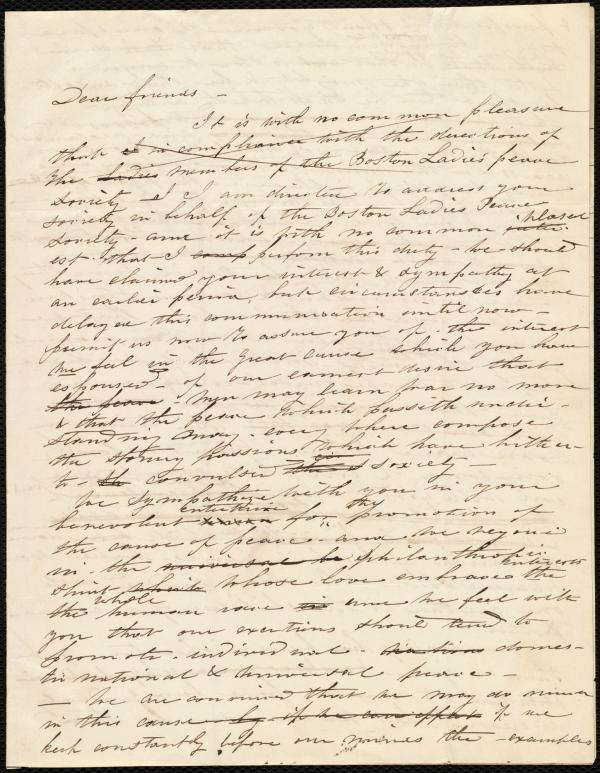 Dear friends -
It is with no common pleasure
that I in compliance with the directions of
the Ladies members of the Boston Ladies peace
Society - I I am directed to address your
society in behalf of the Boston Ladies Peace
Society - and it is with no common pleasure
inter-
est that I comp perform this duty - We should
have claimed your interest & sympathy at
an earlier period, but circumstances have
delayed this communication until now -
permit us now to assure you of the interest
we feel in the great cause which you have
espoused - of our earnest desire that
the peace men may learn war no more
& that the peace which passeth under-
standing may every where compose
the stormy passions which have hither-
to convulsed society -
We sympathize with you in your
benevolent enterprise for the promotion of
the cause of peace - and we rejoice
in the universal be philanthropic
spirit which whose love embraces the interests
the whole human race and we feel with
you that our exertions should tend to
promote individual - domes-
tic national & universal peace -
- We are convinced that we may do much
in this cause by if we can effect if we
keep constantly before our minds the examples